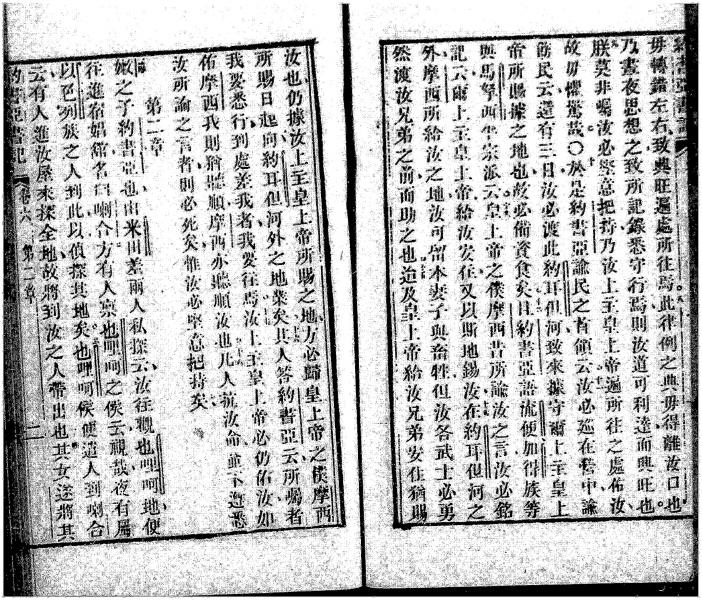 毋轉錯左右致典旺遍處所往焉此律例之典毋得離汝口也
乃晝夜思想之致所記錄悉守行焉則汝道可利達而興旺也
朕莫非囑汝必堅意把持乃汝上主皇上帝遍所往之處佑汝
故毋懼驚哉〇於是約書亞諭民之首領云汝必巡在營中諭
飭民云還有三日汝必渡此約耳但河致來據守爾上主皇上
帝所賜據之地也故必備資食矣且約書亞語流便加得族等
與馬拏西半宗派云皇上帝之僕摩西昔所諭汝之言汝必銘
記云爾上主皇上帝給汝安在又以斯地錫汝在約耳但河之
外摩西所給汝之地汝可留本妻子與畜牲但汝各武士必勇
然渡汝兄弟之前而助之也迨及皇上帝給汝兄弟安住猶賜
汝也仍據汝上主皇上帝所賜之地方必歸皇上帝之僕摩西
所賜日起向約耳但河外之地業矣其人答約書亞云所囑者
我要悉行到處差我者我要往焉汝上主皇上帝必仍佑汝如
佑摩西我則猶聽順摩西亦聽順汝也凡人抗汝命並不遊悉
汝所諭之言者則必死矣惟汝必堅意把持矣
第二章
嫩之子約書亞也由米田差兩人私探云汝往觀也哩呵地便
往進宿娼館名喇合方有人稟也哩呵之侯云視哉夜有屬
以色列族之人到此以偵探其地矣也哩呵侯便遣人到喇合
云有人進汝屋來探全地故將到汝之人帶出也其女遂將其
約書亞書記 卷六 第二章 二